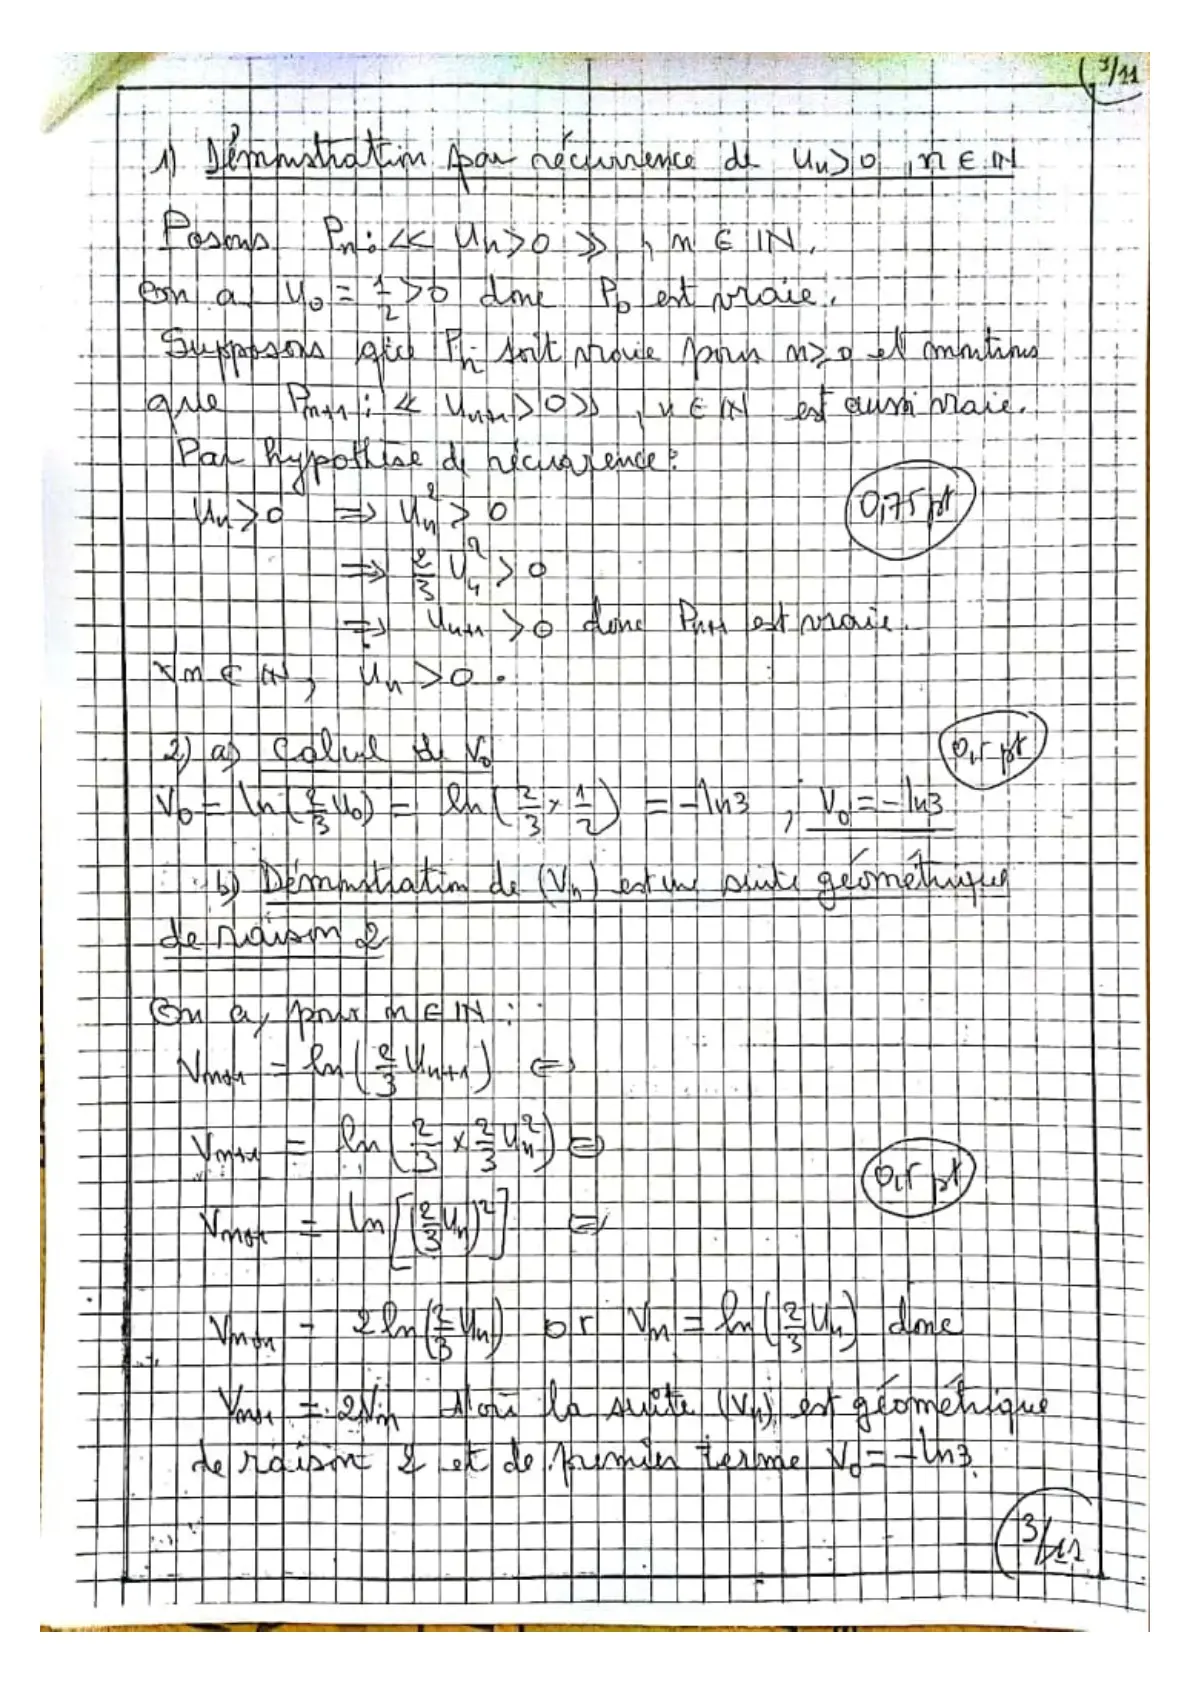 3/11
1) Démonstration par récurrence de Un>0, n ∈ IN
Posons Pn : << Un>0 >>, n ∈ IN.
On a U0 = 1/2 > 0 donc P0 est vraie.
Supposons que Pn soit vraie pour n≥0 et montrons
que Pn+1 : << Un+1 > 0 >>, n ∈ IN est aussi vraie.
Par hypothèse de récurrence :
Un > 0 ⇒ Un² > 0
0,75 pt
⇒ 2/3 Un² > 0
⇒ Un+1 > 0 donc Pn+1 est vraie.
∀n ∈ IN, Un > 0.
2) a) Calcul de V0
0,5 pt
V0 = ln(2/3 U0) = ln(2/3 × 1/2) = -ln3, V0 = -ln3
b) Démonstration de (Vn) est une suite géométrique
de raison 2
On a, pour n ∈ IN :
Vn+1 = ln(2/3 Un+1) ⇔
Vn+1 = ln(2/3 × 2/3 Un²) ⇔
0,5 pt
Vn+1 = ln[(2/3 Un)²] ⇔
Vn+1 = 2ln(2/3 Un) or Vn = ln(2/3 Un) donc
Vn+1 = 2Vn d'où la suite (Vn) est géométrique
de raison 2 et de premier terme V0 = -ln3.
3/11